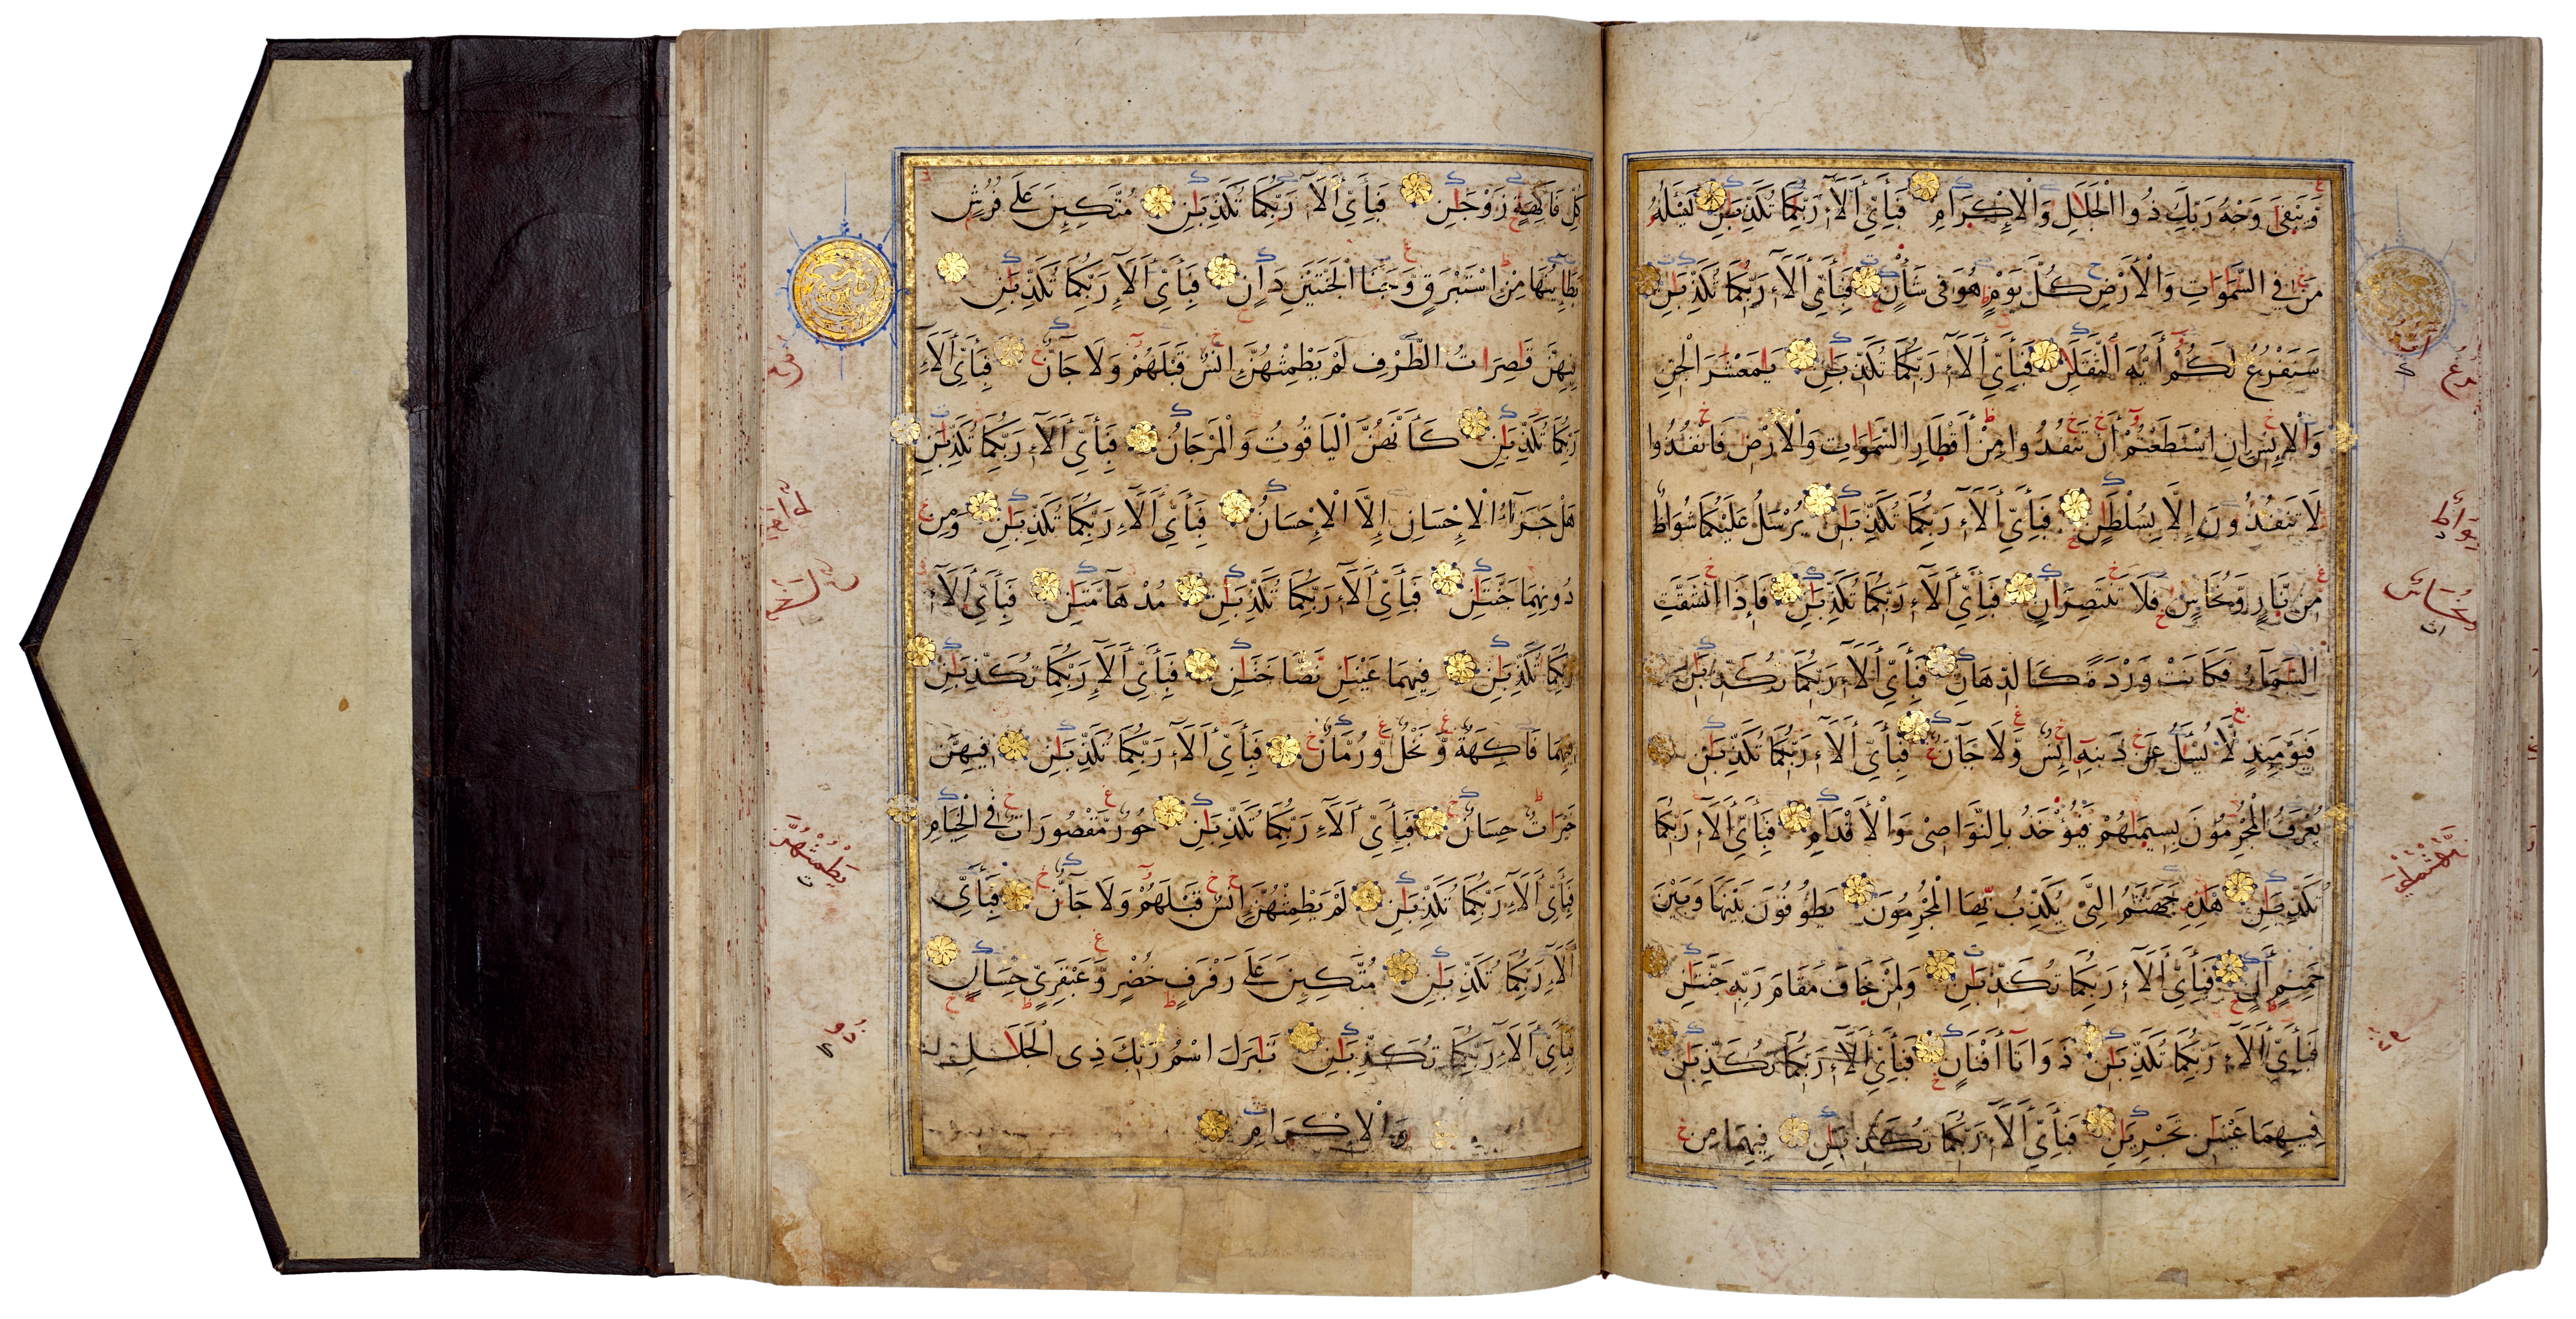 وَيَبْقَىٰ وَجْهُ رَبِّكَ ذُو الْجَلَٰلِ وَالْإِكْرَامِ فَبِأَيِّ أَلَآءِ رَبِّكُمَا تُكَذِّبَٰنِ يَسْـَٔلُهُ
مَن فِي السَّمَٰوَاتِ وَالْأَرْضِ كُلَّ يَوْمٍ هُوَ فِي شَأْنٍ فَبِأَيِّ أَلَآءِ رَبِّكُمَا تُكَذِّبَٰنِ
سَنَفْرُغُ لَكُمْ أَيُّهَ الثَّقَلَٰنِ فَبِأَيِّ أَلَآءِ رَبِّكُمَا تُكَذِّبَٰنِ يَٰمَعْشَرَ الْجِنِّ
وَالْإِنسِ إِنِ اسْتَطَعْتُمْ أَن تَنفُذُوا مِنْ أَقْطَارِ السَّمَٰوَاتِ وَالْأَرْضِ فَانفُذُوا
لَا تَنفُذُونَ إِلَّا بِسُلْطَٰنٍ فَبِأَيِّ أَلَآءِ رَبِّكُمَا تُكَذِّبَٰنِ يُرْسَلُ عَلَيْكُمَا شُوَاظٌ
مِن نَّارٍ وَنُحَاسٌ فَلَا تَنتَصِرَانِ فَبِأَيِّ أَلَآءِ رَبِّكُمَا تُكَذِّبَٰنِ فَإِذَا انشَقَّتِ
السَّمَآءُ فَكَانَتْ وَرْدَةً كَالدِّهَانِ فَبِأَيِّ أَلَآءِ رَبِّكُمَا تُكَذِّبَٰنِ
فَيَوْمَئِذٍ لَّا يُسْـَٔلُ عَن ذَنبِهِ إِنسٌ وَلَا جَآنٌّ فَبِأَيِّ أَلَآءِ رَبِّكُمَا تُكَذِّبَٰنِ
يُعْرَفُ الْمُجْرِمُونَ بِسِيمَٰهُمْ فَيُؤْخَذُ بِالنَّوَاصِي وَالْأَقْدَامِ فَبِأَيِّ أَلَآءِ رَبِّكُمَا
تُكَذِّبَٰنِ هَٰذِهِ جَهَنَّمُ الَّتِي يُكَذِّبُ بِهَا الْمُجْرِمُونَ يَطُوفُونَ بَيْنَهَا وَبَيْنَ
حَمِيمٍ أَنٍ فَبِأَيِّ أَلَآءِ رَبِّكُمَا تُكَذِّبَٰنِ وَلِمَنْ خَافَ مَقَامَ رَبِّهِ جَنَّتَٰنِ
فَبِأَيِّ أَلَآءِ رَبِّكُمَا تُكَذِّبَٰنِ ذَوَاتَا أَفْنَانٍ فَبِأَيِّ أَلَآءِ رَبِّكُمَا تُكَذِّبَٰنِ
فِيهِمَا عَيْنَٰنِ تَجْرِيَٰنِ فَبِأَيِّ أَلَآءِ رَبِّكُمَا تُكَذِّبَٰنِ فِيهِمَا مِن
كُلِّ فَاكِهَةٍ زَوْجَٰنِ فَبِأَيِّ أَلَآءِ رَبِّكُمَا تُكَذِّبَٰنِ مُتَّكِـِٔينَ عَلَى فُرُشٍ
بَطَآئِنُهَا مِنْ اسْتَبْرَقٍ وَجَنَا الْجَنَّتَيْنِ دَانٍ فَبِأَيِّ أَلَآءِ رَبِّكُمَا تُكَذِّبَٰنِ
فِيهِنَّ قَٰصِرَاتُ الطَّرْفِ لَمْ يَطْمِثْهُنَّ إِنسٌ قَبْلَهُمْ وَلَا جَآنٌّ فَبِأَيِّ أَلَآءِ
رَبِّكُمَا تُكَذِّبَٰنِ كَأَنَّهُنَّ الْيَاقُوتُ وَالْمَرْجَانُ فَبِأَيِّ أَلَآءِ رَبِّكُمَا تُكَذِّبَٰنِ
هَلْ جَزَآءُ الْإِحْسَانِ إِلَّا الْإِحْسَانُ فَبِأَيِّ أَلَآءِ رَبِّكُمَا تُكَذِّبَٰنِ وَمِن
دُونِهِمَا جَنَّتَٰنِ فَبِأَيِّ أَلَآءِ رَبِّكُمَا تُكَذِّبَٰنِ مُدْهَآمَّتَٰنِ فَبِأَيِّ أَلَآءِ
رَبِّكُمَا تُكَذِّبَٰنِ فِيهِمَا عَيْنَٰنِ نَضَّاخَتَٰنِ فَبِأَيِّ أَلَآءِ رَبِّكُمَا تُكَذِّبَٰنِ
فِيهِمَا فَاكِهَةٌ وَنَخْلٌ وَرُمَّانٌ فَبِأَيِّ أَلَآءِ رَبِّكُمَا تُكَذِّبَٰنِ فِيهِنَّ
خَيْرَاتٌ حِسَانٌ فَبِأَيِّ أَلَآءِ رَبِّكُمَا تُكَذِّبَٰنِ حُورٌ مَّقْصُورَاتٌ فِي الْخِيَامِ
فَبِأَيِّ أَلَآءِ رَبِّكُمَا تُكَذِّبَٰنِ لَمْ يَطْمِثْهُنَّ إِنسٌ قَبْلَهُمْ وَلَا جَآنٌّ فَبِأَيِّ
أَلَآءِ رَبِّكُمَا تُكَذِّبَٰنِ مُتَّكِـِٔينَ عَلَى رَفْرَفٍ خُضْرٍ وَعَبْقَرِيٍّ حِسَانٍ
فَبِأَيِّ أَلَآءِ رَبِّكُمَا تُكَذِّبَٰنِ تَبَٰرَكَ اسْمُ رَبِّكَ ذِي الْجَلَٰلِ
وَالْإِكْرَامِ
يَطْمِثْهُنَّ